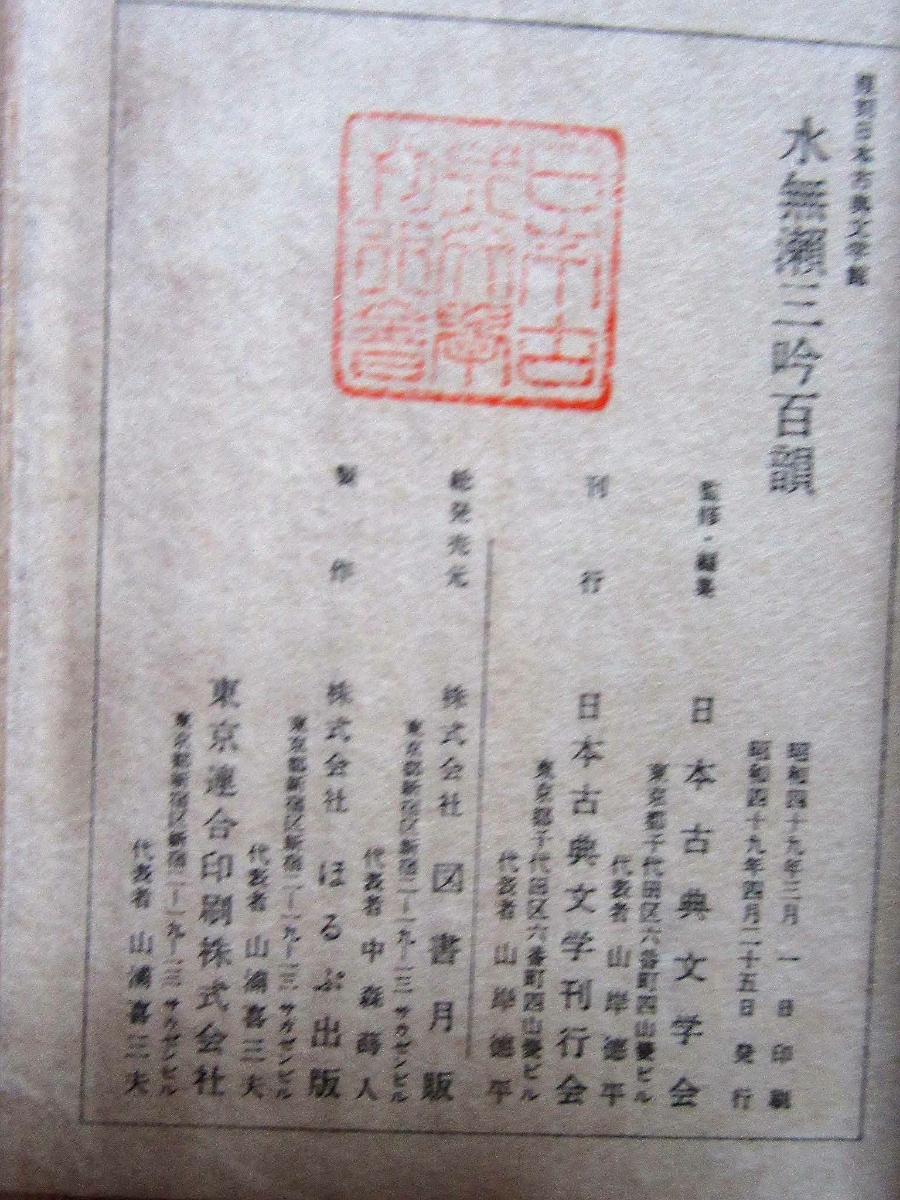 複刻日本古典文学館
水無瀬三吟百韻
昭和四十九年三月 一 日 印 刷
昭和四十九年四月二十五日 発 行
監修・編集 日本古典文学会
東京都千代田区六番町四山菱ビル
代表者 山岸徳平
刊行 日本古典文学刊行会
東京都千代田区六番町四山菱ビル
代表者 山岸徳平
総発売元 株式会社 図書月販
東京都新宿区新宿二ー一九ー一三 サカゼンビル
代表者 中森蒔人
製作 株式会社 ほるぷ出版
東京都新宿区新宿二ー一九ー一三 サカゼンビル
代表者 山浦喜三夫
東京連合印刷株式会社
東京都新宿区新宿二ー一九ー一三 サカゼンビル
代表者 山浦喜三夫
日本古
典文學
刊行會